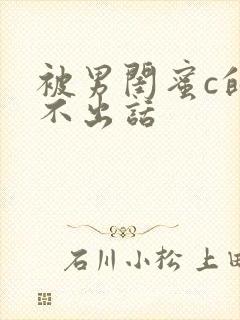 被男閨蜜c的
不出話
石川小松 上田